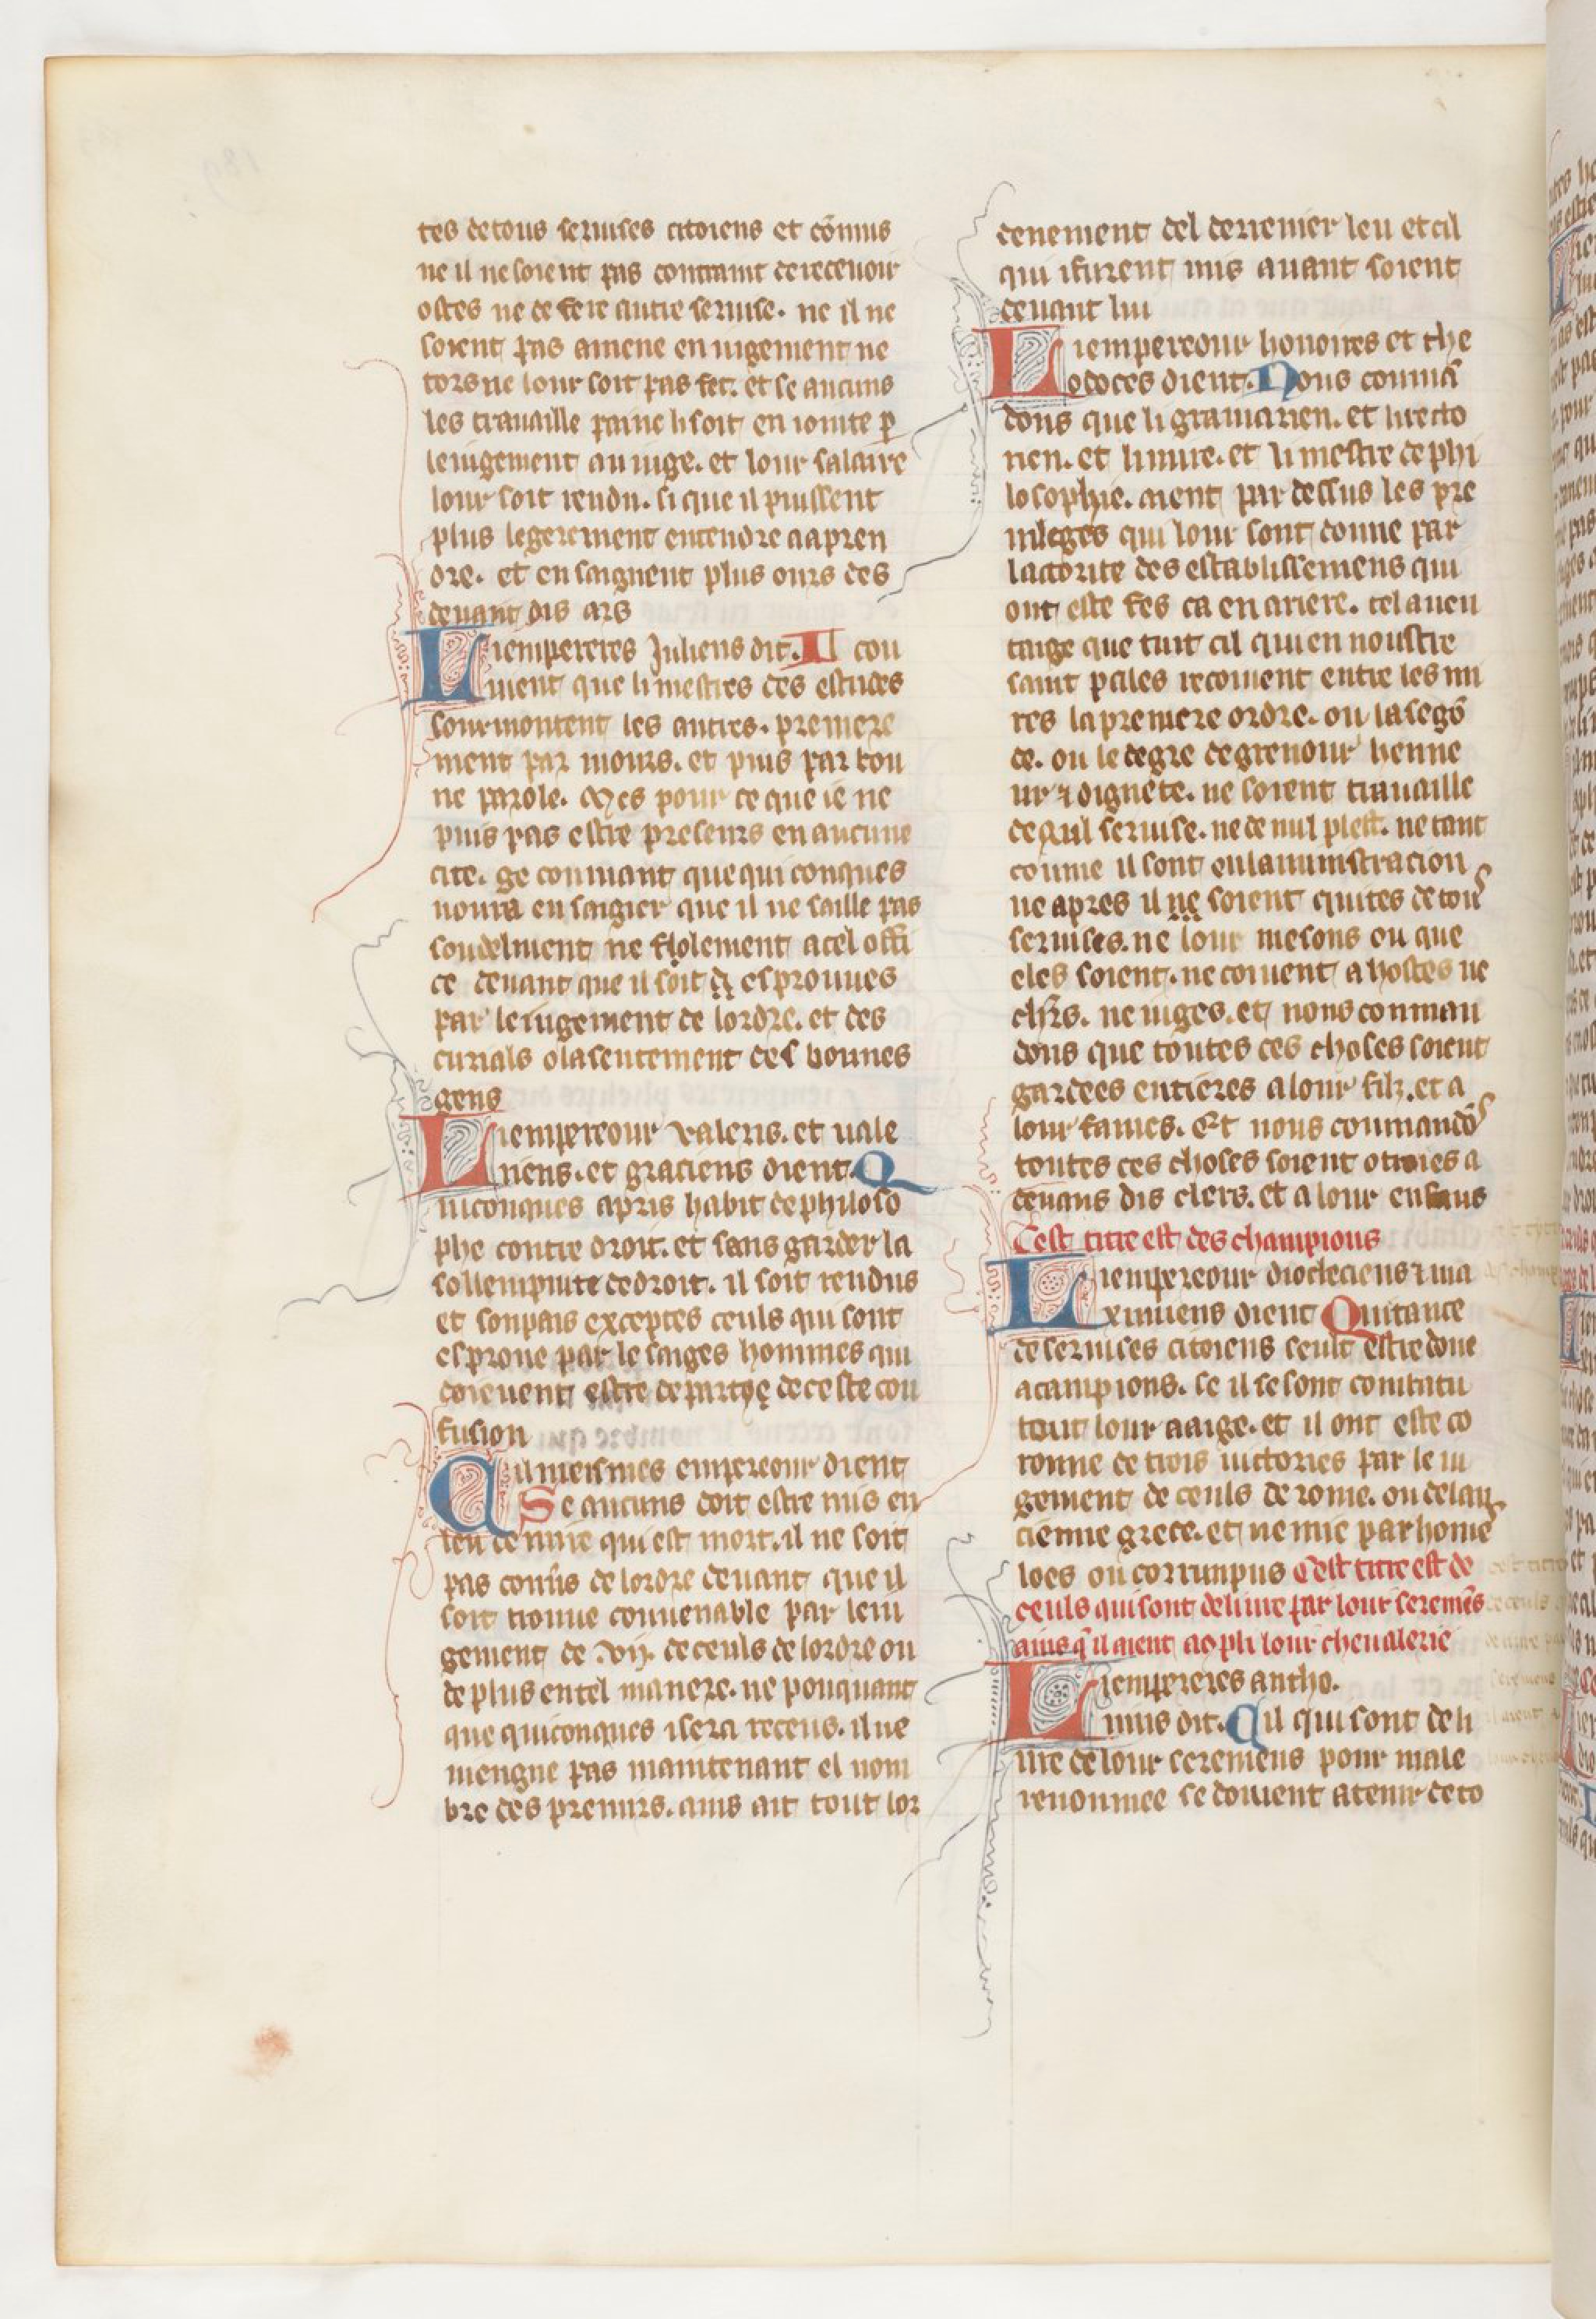 tes de tous seruises citoiens et cõmus
ne il ne soient pas contraint de receuoir
ostes ne de fere autre seruise. ne il ne
soient pas amene en iugement ne
tors ne lour soit pas fet. et se aucuns
les trauaille paine li soit en iointe p
le iugement au iuge. et lour salaire
lour soit rendu. si que il puissent
plus legerement entendre a apren
dre. et ensaignent plus ours des
deuant dis ars
Li empereres Juliens dit. Il cou
uient que li mestres des estudes
sourmontent les autres. premiere
ment par mours. et puis par bon
ne parole. Mes pour ce que ie ne
puis pas estre presens en aucune
cite. ge conmant que qui conques
uoura ensaigier que il ne saille pas
soudelment ne folement a cel offi
ce deuant que il soit esprouues
par le iugement de lordre. et des
curials o lasentement des bonnes
gens
Li empereour valens. et uale
niens. et graciens dient. Q
uiconques apris habit de philoso
phe contre droit. et sans garder la
sollempnite de droit. il soit rendus
et son pais exceptes ceuls qui sont
esproue par le saiges hommes qui
doieuent estre departye de ceste con
fusion
Cil meismes empereour dient
Se aucuns doit estre mis en
leu de mire qui est mort. il ne soit
pas conuis de lordre deuant que il
soit trouue conuenable par leiu
gement de .vij. de ceuls de lordre ou
de plus en tel manere. ne pouquant
que quiconques i sera receus. il ne
uiengne pas maintenant el nom
bre des premiers. ains ait tout lor
denement del derrenier leu et cil
qui i furent mis auant soient
deuant lui
Li empereour honoires et the
odoces dient. Nous conmã
dons que li gramarien. et li recto
rien. et li mire. et li mestre de phi
losophie. aient par dessus les pre
uileges qui lour sont donne par
lactorite des establissemens qui
ont este fes ca en ariere. tel auen
taige que tuit cil qui en noustre
saint pales recoiuent entre les mi
res la premere ordre. ou la segõ
de. ou le degre de grenour henne
ur ⁊ dignete. ne soient trauaille
de nul seruise. ne de nul plest. ne tant
comme il sont en lamministracion
ne apres il ne soient quites de tous
seruises. ne lour mesons ou que
eles soient. ne coiuent a hostes ne
chlrs. ne iuges. et nous conman
dons que toutes ces choses soient
gardees entieres a lour filz. et a
lour fames. Et nous conmandõs
toutes ces choses soient otroies a
deuans dis clers. et a lour enfans
Cest titre est des champions
Li empereour diocleciens ⁊ ma
ximiens dient Quitance
de seruises citoiens seult estre done
a campions. se il se sont conbatu
tout lour aaige. et il ont este co
ronne de trois uictories par le iu
gement de ceuls de rome. ou de lan
cienne grece. et ne mie par home
loes ou corrunpus Cest titre est de
ceuls qui sont deliure par lour seremẽs
ains q̃ il aient acõpli lour cheualerie
Li empereres antho.
nius dit. Cil qui sont deli
ure de lour seremens pour male
renonmee se doiuent atenir de to